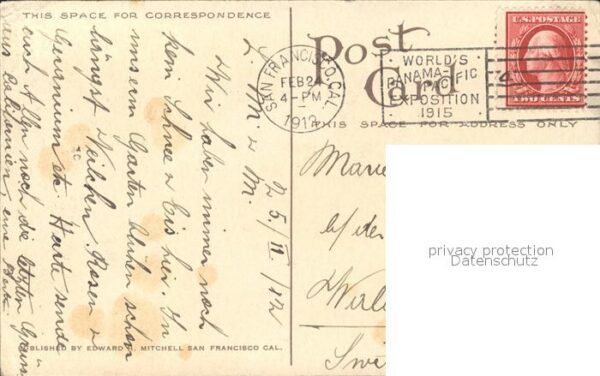 THIS SPACE FOR CORRESPONDENCE
25./II./12
L. M. & M.
Wir haben immer noch
kein Schnee & Eis hier. In
unserm Garten blühen schon
längst Veilchen Rosen &
Geranium etc. Heute sende
euch Allen noch die letzten Grüsse
aus Californien, eure Bertha
PUBLISHED BY EDWARD H. MITCHELL SAN FRANCISCO CAL.
Post Card
THIS SPACE FOR ADDRESS ONLY
SAN FRANCISCO, CAL.
FEB 24
4-PM
1912
WORLD'S
PANAMA-PACIFIC
EXPOSITION
1915
U.S. POSTAGE
TWO CENTS
Marie
b/der
Swi
privacy protection
Datenschutz